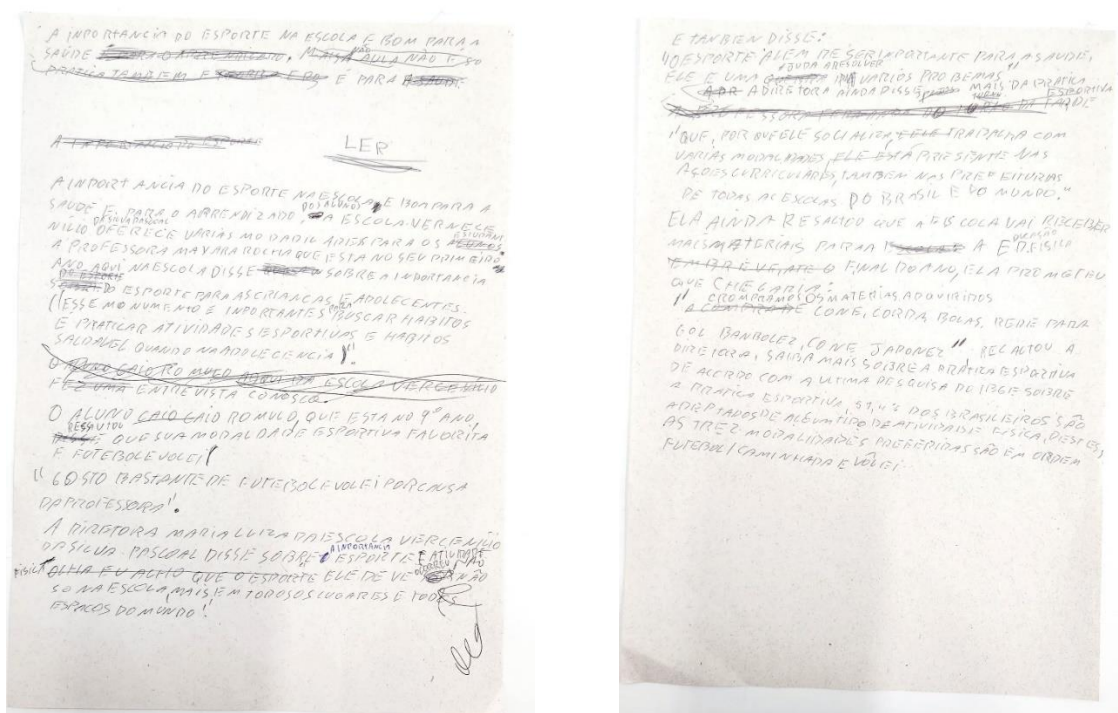 A INPORTANCIA DO ESPORTE NA ESCOLA E BOM PARA A
SAÚDE PARA O APRENDIZADO. AULA NÃO É SO
PRATICA TAMBEM E E PARA A SAUDE
A INPORTANCIA DO ESPORTE
LER
A INPORTANCIA DO ESPORTE NA ESCOLA E BOM PARA A
SAUDE E PARA O APRENDIZADO DOS ALUNOS. A ESCOLA VERCELE
NILIO DA SILVA PASCOAL OFERECE VARIAS MODALIDADES PARA OS ESTUDAN
A PROFESSORA MAYARA ROCHA QUE ESTA NO SEU PRIMEIRO
ANO AQUI NA ESCOLA DISSE SOBRE A INDORTANCIA
DO ESPORTE PARA AS CRIANCAS E ADOLECENTES.
"ESSE MONUMENTO E INPORTANTES PARA BUSCAR HABITOS
E PRATICAR ATIVIDADES ESPORTIVAS E HABITOS
SALDAVEL QUANDO NA ADOLECENCIA".
O ALUNO CAIO ROMULO AQUI DA ESCOLA VERCENILIO
FEZ UMA ENTREVISTA CONOSCO.
O ALUNO CAIO CAIO ROMULO, QUE ESTA NO 9º ANO,
RESSALTOU QUE SUA MODALIDADE ESPORTIVA FAVORITA
E FUTEBOL E VOLEI
"GOSTO BASTANTE DE FUTEBOL E VOLEI POR CAUSA
DA PROFESSORA".
A DIRETORA MARIA LUIZA DA ESCOLA VERCENILIO
DA SILVA PASCOAL DISSE SOBRE A INPORTANCIA ESPORTE E ATIVIDADE
FISICA OLHA EU ACHO QUE O ESPORTE ELE DEVE NÃO
SO NA ESCOLA, MAIS EM TODOS OS LUGARES E TODOS
ESPACOS DO MUNDO".
E TANBEN DISSE:
"O ESPORTE ALEM DE SER INPORTANTE PARA A SAUDE,
ELE E UMA AJUDA A RESOLVER VARIOS PROBEMAS"
A DIRETORA AINDA DISSE MAIS DA PRATICA ESPORTIVA
A PROFESSORA TURNO DA TARDE
"QUE, POR QUE ELE SOCIALIZA, E ELE TRABALHA COM
VARIAS MODALIDADES, ELE ESTÁ PRESENTE NAS
AÇOES CURRICULADOS, TAMBEM NAS PREFEITURAS
DE TODAS AS ESCOLAS DO BRASIL E DO MUNDO."
ELA AINDA RESALTOU QUE A ESCOLA VAI RECEBER
MAIS MATERIAIS PARA A EDUCAÇÃO FISICA
EM BREVE, ATE O FINAL DO ANO, ELA PROMETEU
QUE CHEGARIA:
"COMPRAMOS OS MATERIAS ADQUIRIDOS
CONE, CORDA, BOLAS, REDE PARA
GOL BANBOLEZ, CONE JAPONEZ" RELATOU A
DIRETORA, SAIBA MAIS SOBRE A PRATICA ESPORTIVA
DE ACORDO COM A ULTIMA PESQUISA DO IBGE SOBRE
A PRATICA ESPORTIVA, % DOS BRASILEIROS SÃO
ADEPTADOS DE ALGUM TIPO DE ATIVIDADE FISICA, DESTES,
AS TREZ MODALIDADES PREFERIDAS SÃO EM ORDEM
FUTEBOL, CAMINHADA E VÔLEI.